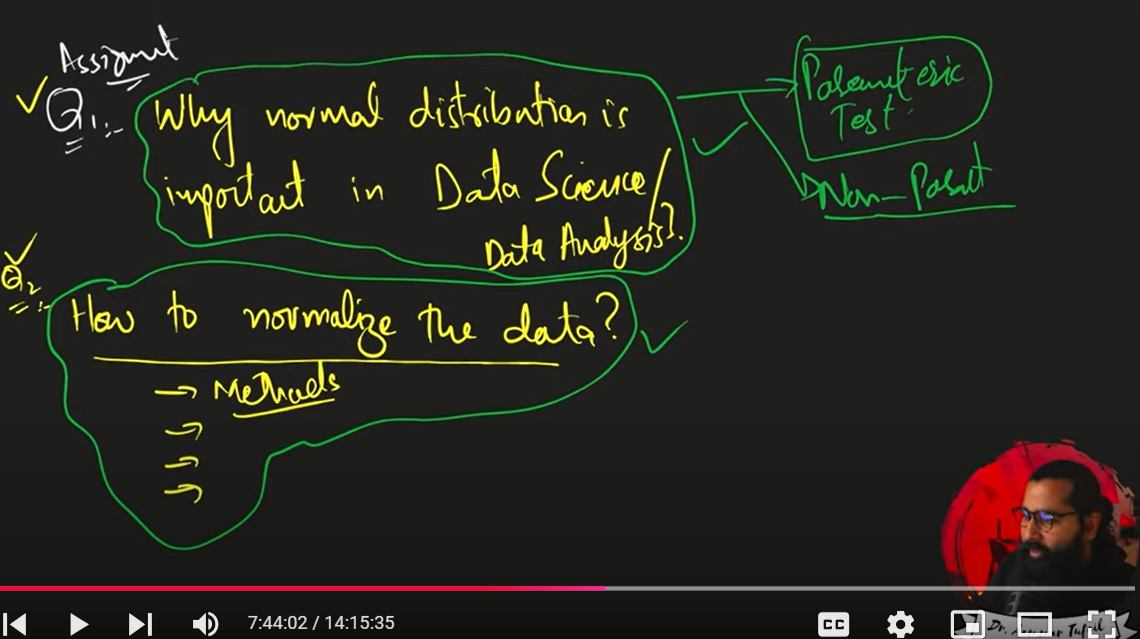 Assignment
Q1:- Why normal distribution is
important in Data Science/
Data Analysis?
Parameteric
Test
Non-Paramt
Q2:- How to normalize the data?
→ Methods
→
→
→
7:44:02 / 14:15:35
CC
Dr.